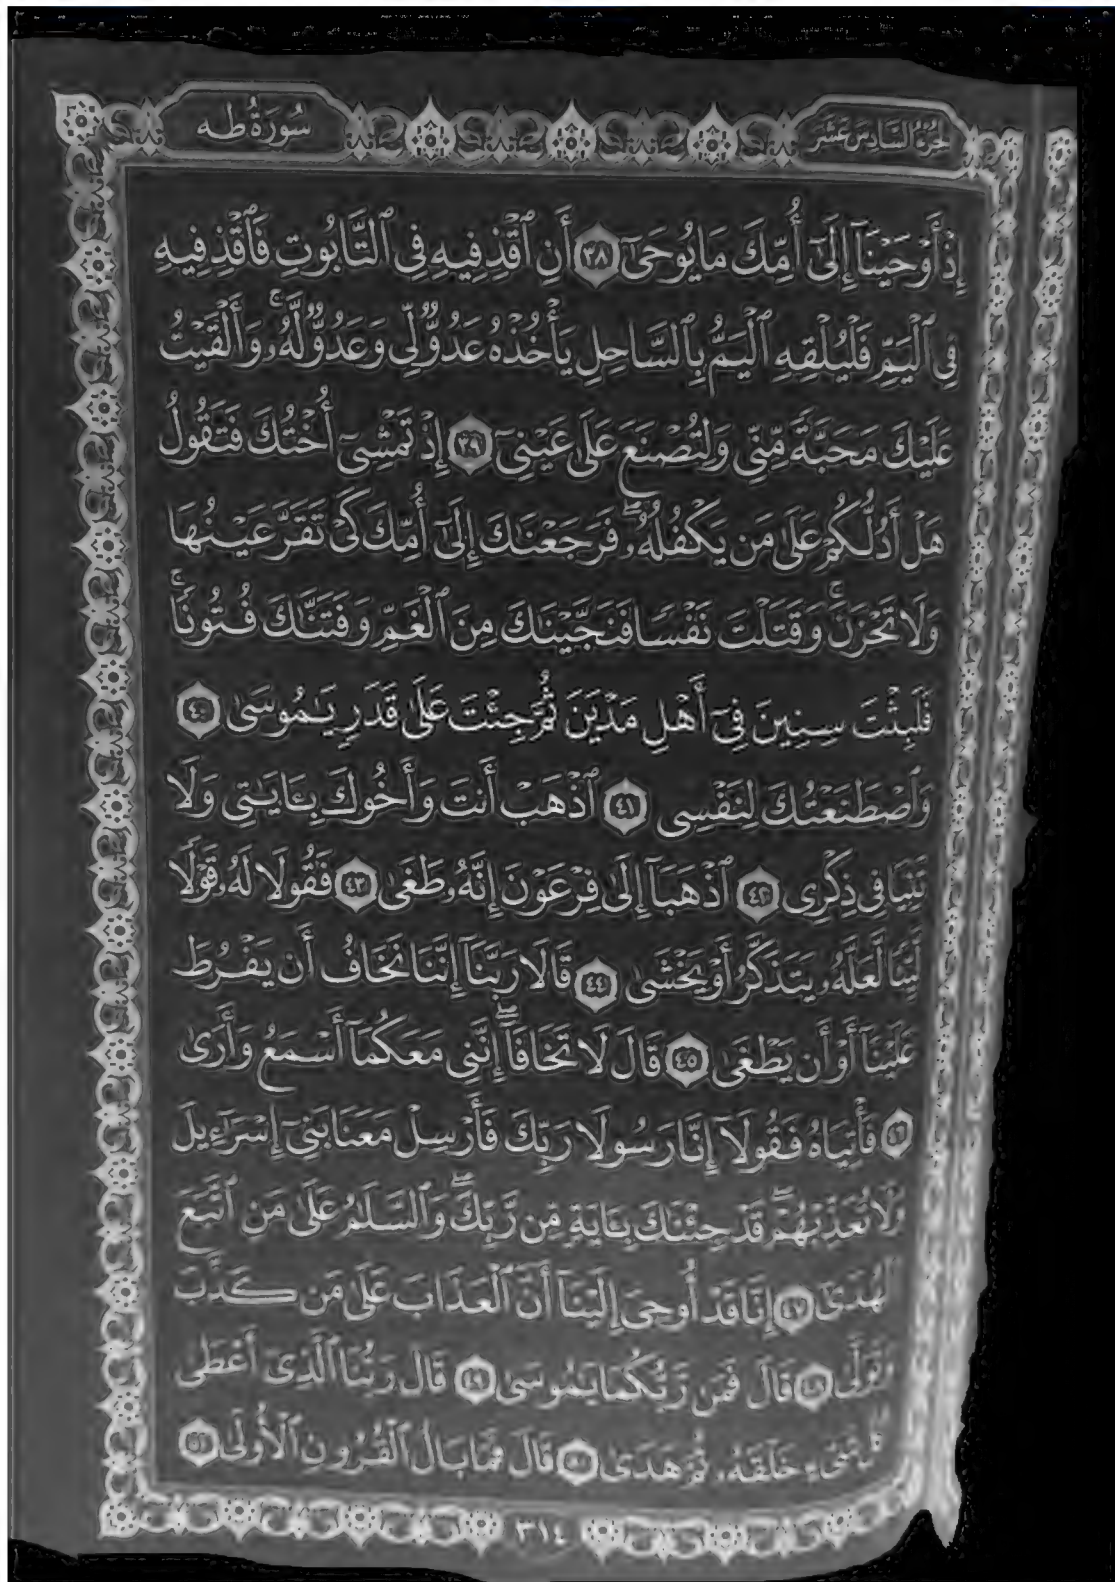 الجزء السادس عشر
سورة طه
إِذْ أَوْحَيْنَآ إِلَىٰٓ أُمِّكَ مَا يُوحَىٰٓ ٣٨ أَنِ ٱقْذِفِيهِ فِى ٱلتَّابُوتِ فَٱقْذِفِيهِ
فِى ٱلْيَمِّ فَلْيُلْقِهِ ٱلْيَمُّ بِٱلسَّاحِلِ يَأْخُذْهُ عَدُوٌّ لِّى وَعَدُوٌّ لَّهُۥ ۚ وَأَلْقَيْتُ
عَلَيْكَ مَحَبَّةً مِّنِّى وَلِتُصْنَعَ عَلَىٰ عَيْنِىٓ ٣٩ إِذْ تَمْشِىٓ أُخْتُكَ فَتَقُولُ
هَلْ أَدُلُّكُمْ عَلَىٰ مَن يَكْفُلُهُۥ ۖ فَرَجَعْنَٰكَ إِلَىٰٓ أُمِّكَ كَىْ تَقَرَّ عَيْنُهَا
وَلَا تَحْزَنَ ۚ وَقَتَلْتَ نَفْسًا فَنَجَّيْنَٰكَ مِنَ ٱلْغَمِّ وَفَتَنَّٰكَ فُتُونًا ۚ
فَلَبِثْتَ سِنِينَ فِىٓ أَهْلِ مَدْيَنَ ثُمَّ جِئْتَ عَلَىٰ قَدَرٍ يَٰمُوسَىٰ ٤٠
وَٱصْطَنَعْتُكَ لِنَفْسِى ٤١ ٱذْهَبْ أَنتَ وَأَخُوكَ بِـَٔايَٰتِى وَلَا
تَنِيَا فِى ذِكْرِى ٤٢ ٱذْهَبَآ إِلَىٰ فِرْعَوْنَ إِنَّهُۥ طَغَىٰ ٤٣ فَقُولَا لَهُۥ قَوْلًا
لَّيِّنًا لَّعَلَّهُۥ يَتَذَكَّرُ أَوْ يَخْشَىٰ ٤٤ قَالَا رَبَّنَآ إِنَّنَا نَخَافُ أَن يَفْرُطَ
عَلَيْنَآ أَوْ أَن يَطْغَىٰ ٤٥ قَالَ لَا تَخَافَآ ۖ إِنَّنِى مَعَكُمَآ أَسْمَعُ وَأَرَىٰ
٤٦ فَأْتِيَاهُ فَقُولَآ إِنَّا رَسُولَا رَبِّكَ فَأَرْسِلْ مَعَنَا بَنِىٓ إِسْرَٰٓءِيلَ
وَلَا تُعَذِّبْهُمْ ۖ قَدْ جِئْنَٰكَ بِـَٔايَةٍ مِّن رَّبِّكَ ۖ وَٱلسَّلَٰمُ عَلَىٰ مَنِ ٱتَّبَعَ
ٱلْهُدَىٰٓ ٤٧ إِنَّا قَدْ أُوحِىَ إِلَيْنَآ أَنَّ ٱلْعَذَابَ عَلَىٰ مَن كَذَّبَ
وَتَوَلَّىٰ ٤٨ قَالَ فَمَن رَّبُّكُمَا يَٰمُوسَىٰ ٤٩ قَالَ رَبُّنَا ٱلَّذِىٓ أَعْطَىٰ
شَىْءٍ خَلْقَهُۥ ثُمَّ هَدَىٰ ٥٠ قَالَ فَمَا بَالُ ٱلْقُرُونِ ٱلْأُولَىٰ ٥١
٣١٤